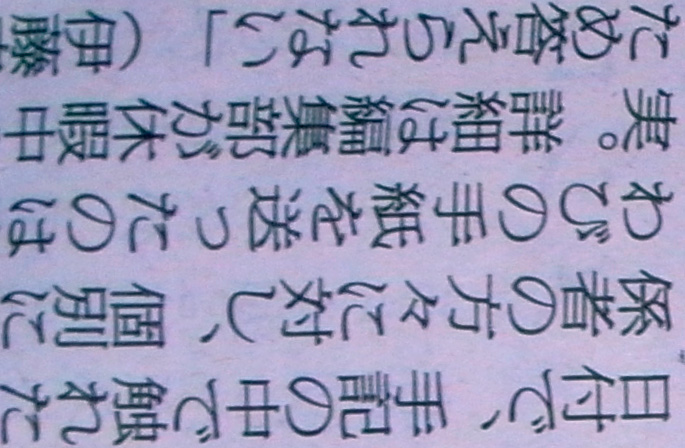 日付で、手記の中で触れた
係者の方々に対し、個別に
わびの手紙を送ったのは
実。詳細は編集部が休暇中
ため答えられない」（伊藤